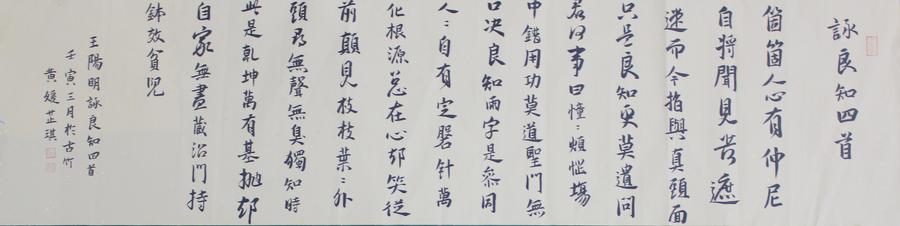 詠良知四首
箇箇人心有仲尼
自將聞見苦遮
迷而今指與真頭面
只是良知更莫遺問
君何事日憧〻煩惱場
中錯用功莫道聖門無
口決良知兩字是參同
人〻自有定盤針萬
化根源总在心却笑從
前顛見枝枝葉〻外
頭尋無聲無臭獨知時
此是乾坤萬有基拋却
自家無盡藏沿門持
鉢效貧兒
王陽明詠良知四首
壬寅三月於古竹
黃媛芷琪